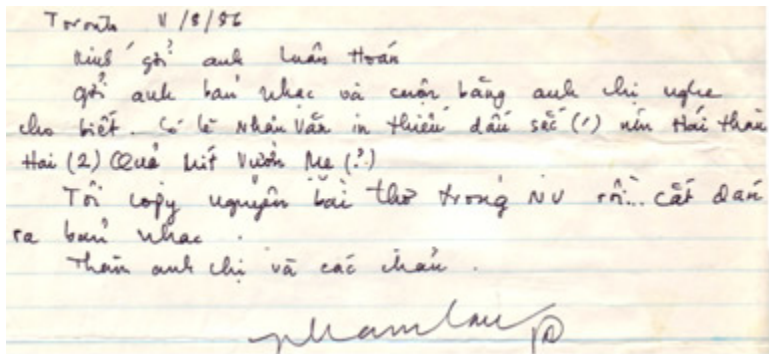 Toronto 11/8/86
Kính gởi anh Luân Hoán
Gởi anh bản nhạc và cuộn băng anh chị nghe
cho biết. Có lẽ Nhân Văn in thiếu dấu sắc (') nên Hái thành
Hai (2) Quả Mít Vườn Me (?)
Tôi copy nguyên bài thơ trong NV rồi... cắt dán
ra bản nhạc.
Thăm anh chị và các cháu.